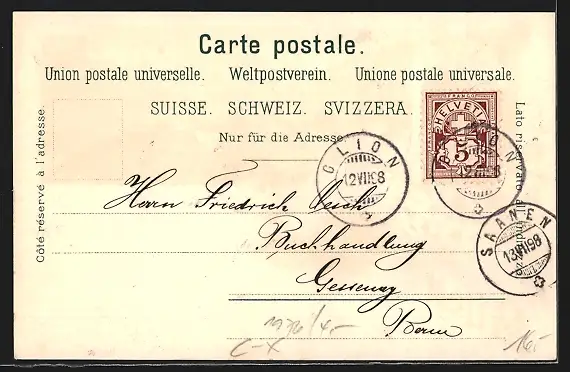 Carte postale.
Union postale universelle. Weltpostverein. Unione postale universale.
SUISSE. SCHWEIZ. SVIZZERA.
Nur für die Adresse.
Côté réservé à l'adresse.
Lato riservato all'indirizzo.
FRANCO
HELVETIA
5
GLION
12 VII 98
GLION
12 VII 98
SAANEN
13 VII 98
Herrn Friedrich
Buchhandlung
Gessenay
Bern
C-X
16.-